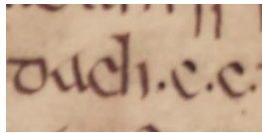 dach·c·c·